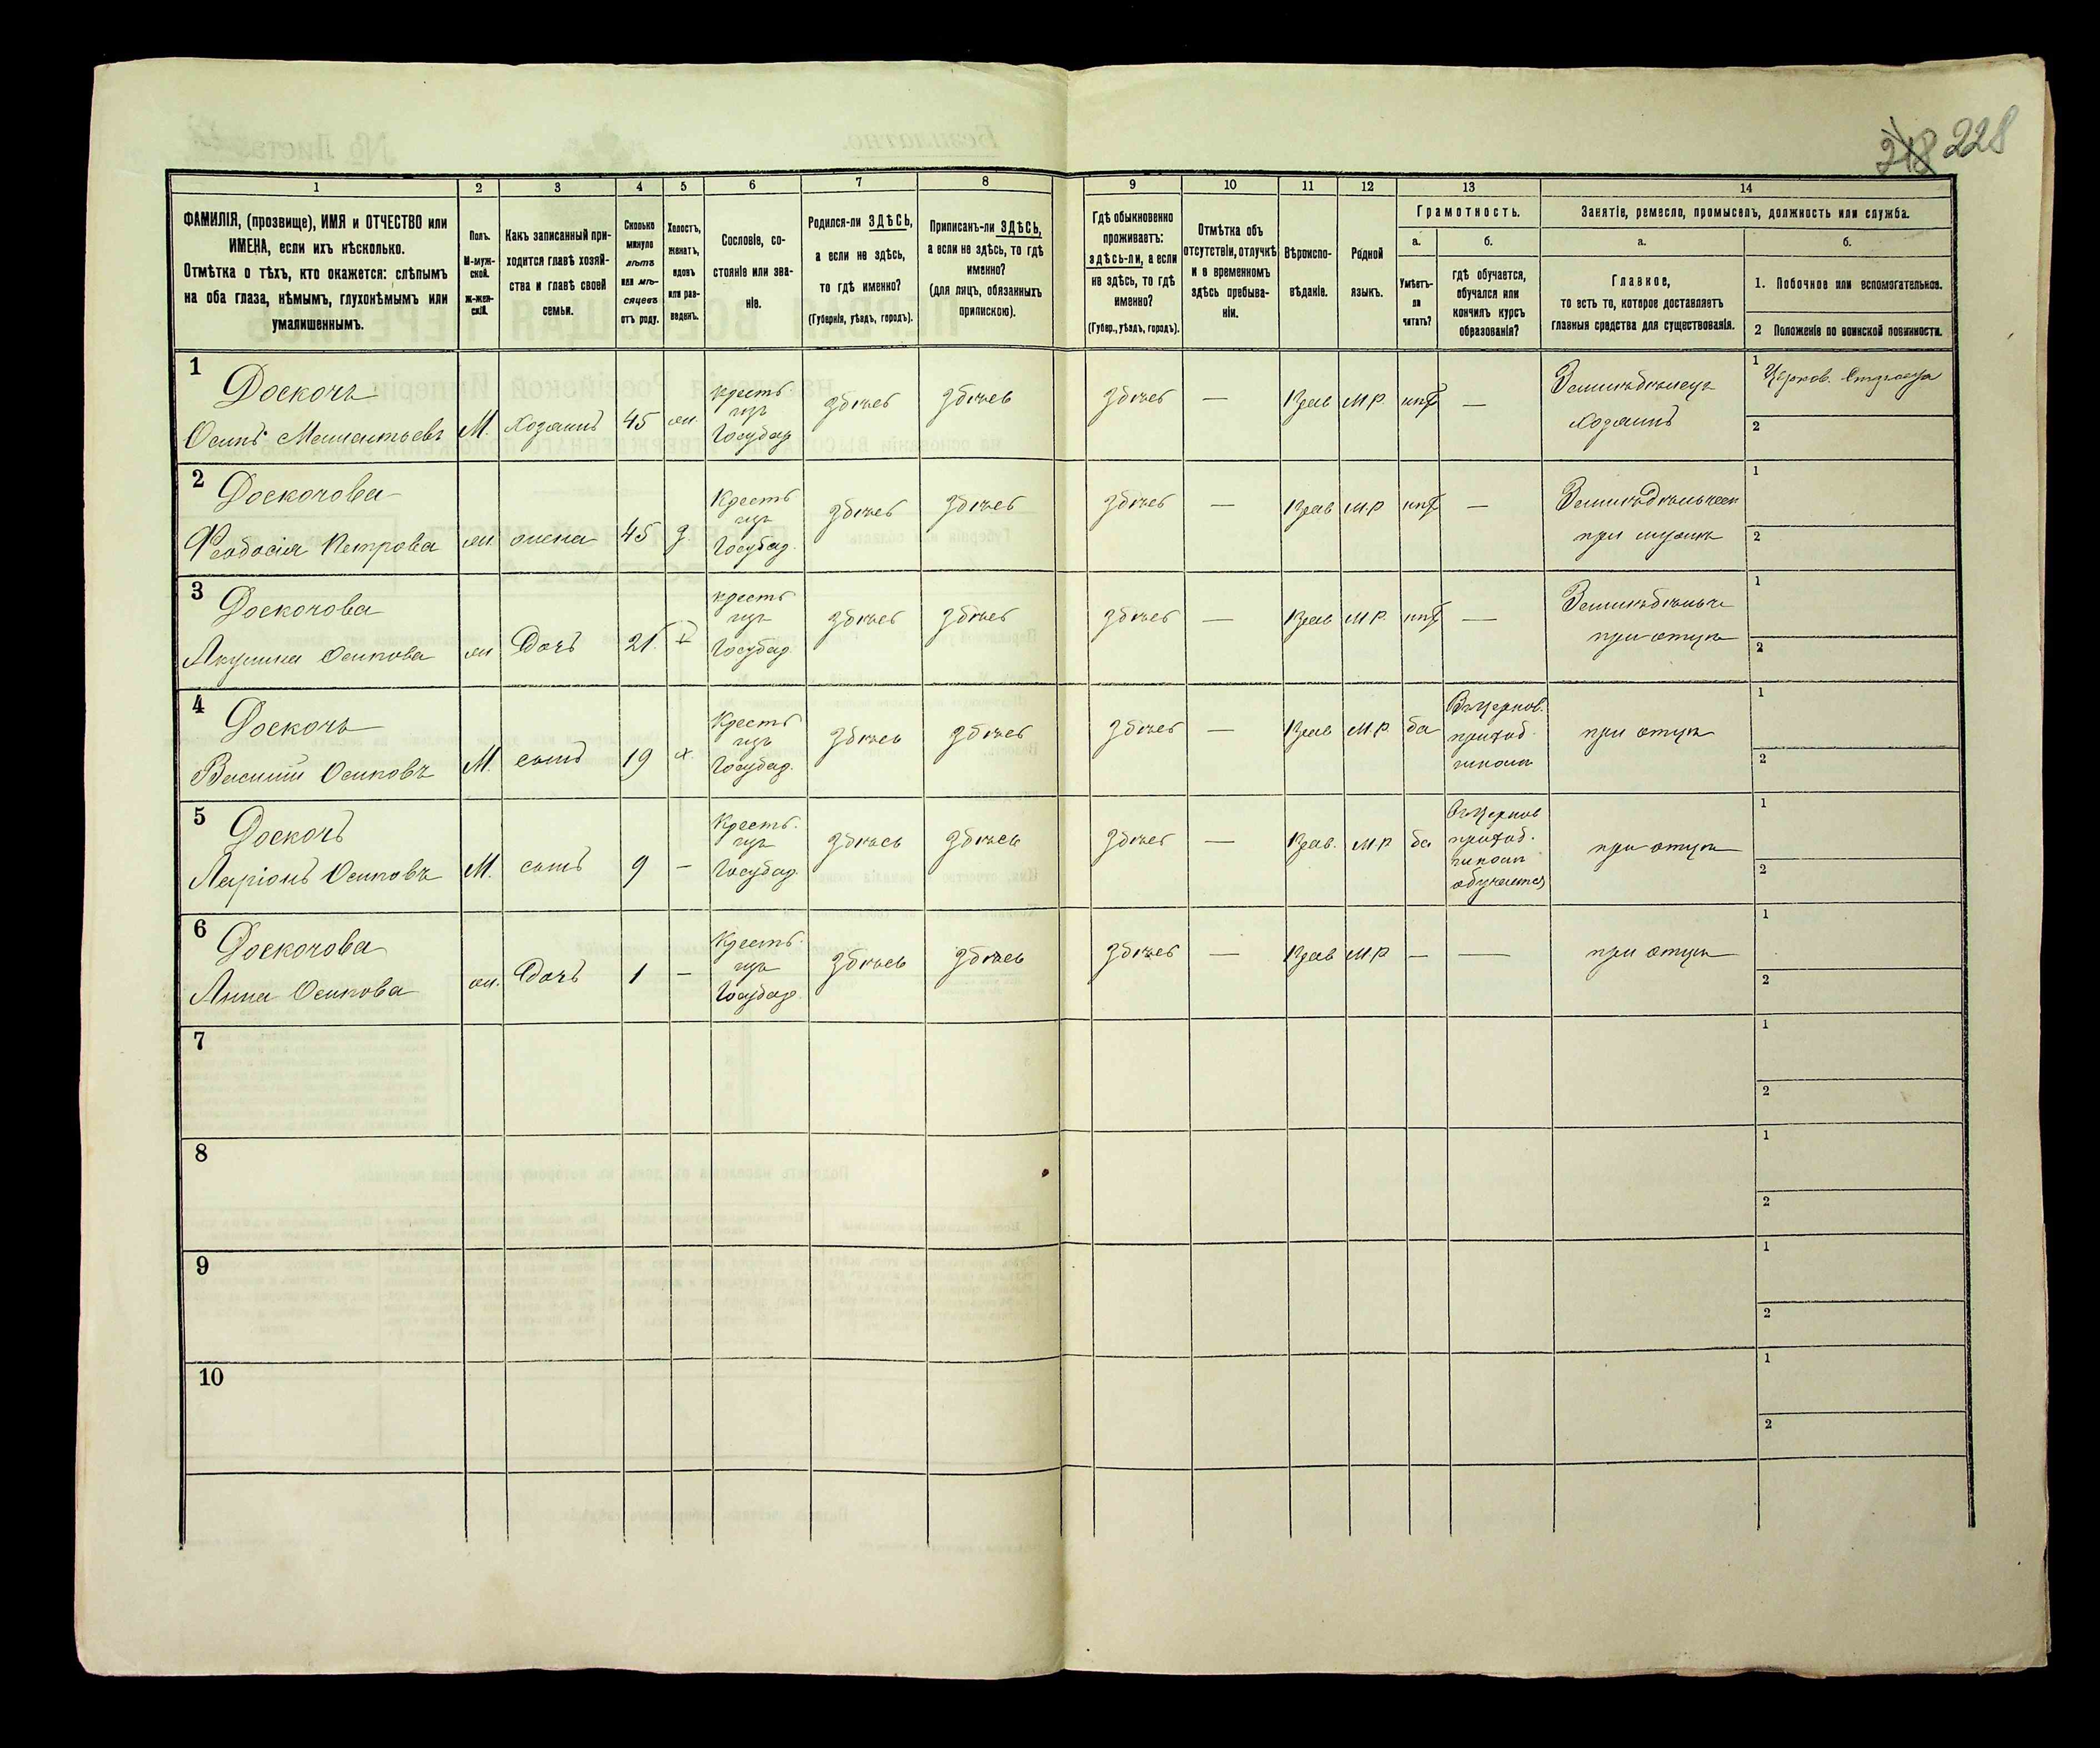 218 228
1 2 3 4 5 6 7 8 9 10 11 12 13 14
ФАМИЛІЯ, (прозвище), ИМЯ и ОТЧЕСТВО или
ИМЕНА, если ихъ нѣсколько.
Отмѣтка о тѣхъ, кто окажется: слѣпымъ
на оба глаза, нѣмымъ, глухонѣмымъ или
умалишеннымъ.
Полъ.
М-муж-
ской.
ж-жен-
скій.
Какъ записанный при-
ходится главѣ хозяй-
ства и главѣ своей
семьи.
Сколько
минуло
лѣтъ
или мѣ-
сяцевъ
отъ роду.
Холостъ,
женатъ,
вдовъ
или раз-
веденъ.
Сословіе, со-
стояніе или зва-
ніе.
Родился-ли ЗДѢСЬ,
а если не здѣсь,
то гдѣ именно?
(Губернія, уѣздъ, городъ).
Приписанъ-ли ЗДѢСЬ,
а если не здѣсь, то гдѣ
именно?
(для лицъ, обязанныхъ
припискою).
Гдѣ обыкновенно
проживаетъ:
здѣсь-ли, а если
не здѣсь, то гдѣ
именно?
(Губер., уѣздъ, городъ).
Отмѣтка объ
отсутствіи, отлучкѣ
и о временномъ
здѣсь пребыва-
ніи.
Вѣроиспо-
вѣданіе.
Родной
языкъ.
Грамотность.
а.
Умѣетъ-
ли
читать?
б.
гдѣ обучается,
обучался или
кончилъ курсъ
образованія?
Занятіе, ремесло, промыселъ, должность или служба.
а.
Главное,
то есть то, которое доставляетъ
главныя средства для существованія.
б.
1. Побочное или вспомогательное.
2 Положеніе по воинской повинности.
1
Доскочъ
Осипъ
М. хозяинъ 45 жн.
крестъ
изъ
Государ
здѣсь здѣсь здѣсь — Прав М.Р. нѣтъ —
Земледѣлецъ
хозяинъ
1 Церков.
2
2
Доскочова
Феодосія Петрова
жн. жена 45 з.
Крестъ
изъ
Государ.
здѣсь здѣсь здѣсь — Прав М.Р нѣтъ —
при мужѣ
1
2
3
Доскочова
Акулина Осипова
жн Дочь 21.
крестъ
изъ
Государ.
здѣсь здѣсь здѣсь — Прав М.Р. нѣтъ —
при отцѣ
1
2
4
Доскочъ
Василій Осиповъ
М. сынъ 19 х.
Крестъ
изъ
Государ.
здѣсь здѣсь здѣсь — Прав М.Р. да
Въ церков.
приход.
школѣ
при отцѣ
1
2
5
Доскочъ
Ларіонъ Осиповъ
М. сынъ 9 —
Крестъ.
изъ
Государ.
здѣсь здѣсь здѣсь — Прав. М.Р да
Въ церков
приход.
школѣ
обучается
при отцѣ
1
2
6
Доскочова
Анна Осипова
жн. Дочь 1 —
Крестъ.
изъ
Государ.
здѣсь здѣсь здѣсь — Прав М.Р — —
при отцѣ
1
2
7
1
2
8
1
2
9
1
2
10
1
2